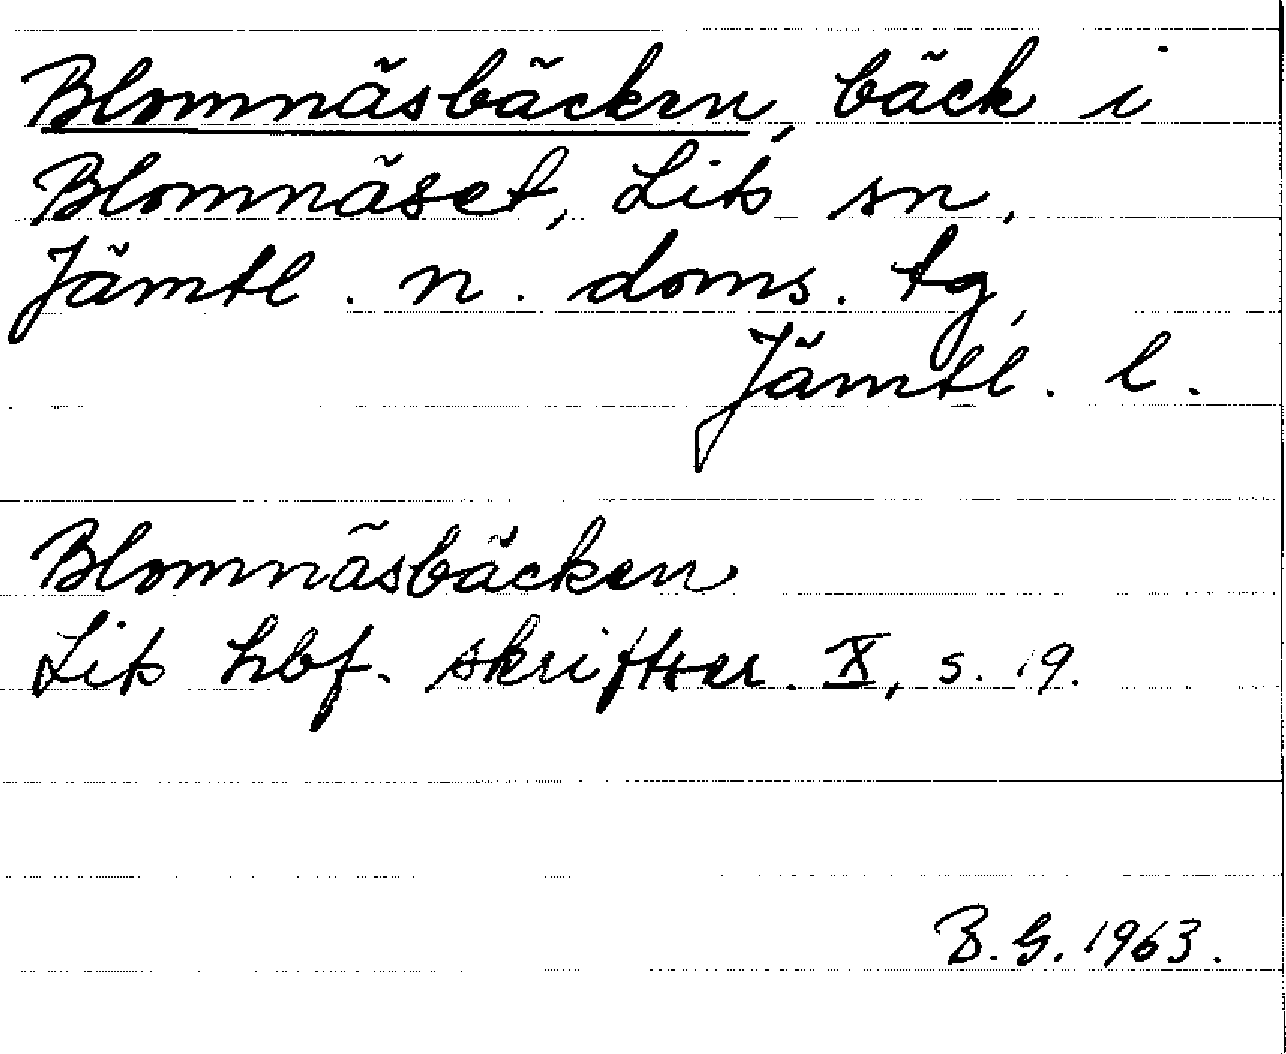 Blomnäsbäcken, bäck i
Blomnäset, Lits sn,
Jämtl. n. doms. tg,
Jämtl. l.
Blomnäsbäcken
Lits hbf. skrifter. X, s. 19.
B. G. 1963.